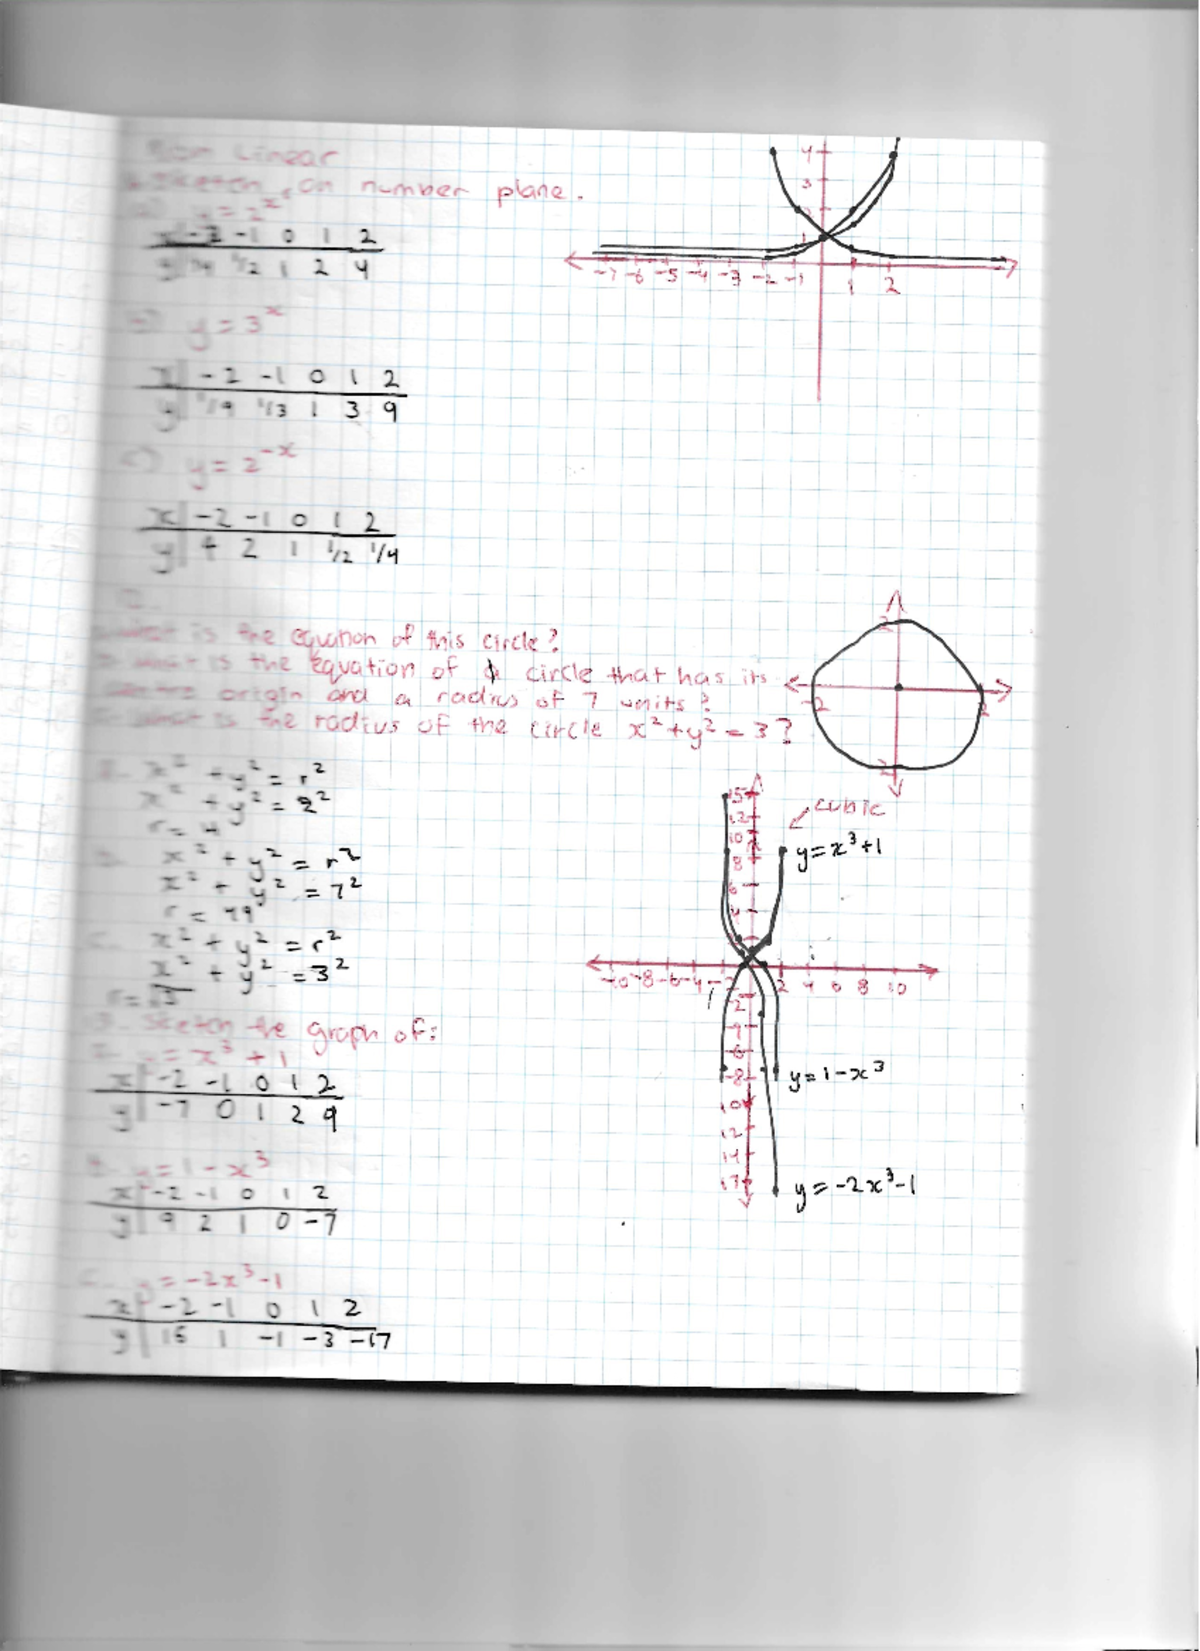 Non Linear
Sketch on number plane.
y = 2^x
x -2 -1 0 1 2
y 1/4 1/2 1 2 4
b) y = 3^x
x -2 -1 0 1 2
y 1/9 1/3 1 3 9
c) y = 2^-x
x -2 -1 0 1 2
y 4 2 1 1/2 1/4
4
3
1
-7 -6 -5 -4 -3 -2 -1 1 2
2.
what is the equation of this circle?
what is the equation of a circle that has its
centre origin and a radius of 7 units?
what is the radius of the circle x² + y² = 3?
2
-2 2
2
x² + y² = r²
x² + y² = 2²
r = 4
x² + y² = r²
x² + y² = 7²
r = 49
c. x² + y² = r²
x² + y² = 3²
r = √3
3. Sketch the graph of:
y = x³ + 1
x -2 -1 0 1 2
y -7 0 1 2 9
y = 1 - x³
x -2 -1 0 1 2
y 9 2 1 0 -7
c. y = -2x³-1
x -2 -1 0 1 2
y 15 1 -1 -3 -17
cubic
y = x³+1
15
12
10
8
6
4
-10 -8 -6 -4 -2 2 4 6 8 10
-2
-4
-6
-8
10
12
14
17
y = 1 - x³
y = -2x³-1